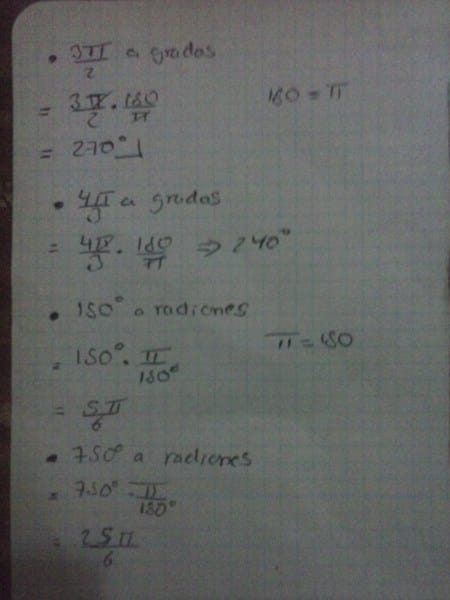 • 3π/2 a grados
= 3π/2 · 180/π    180 = π
= 270°
• 4π/3 a grados
= 4π/3 · 180/π ⇒ 240°
• 150° a radianes
= 150° · π/180°    π = 180
= 5π/6
• 750° a radianes
= 750° · π/180°
= 25π/6